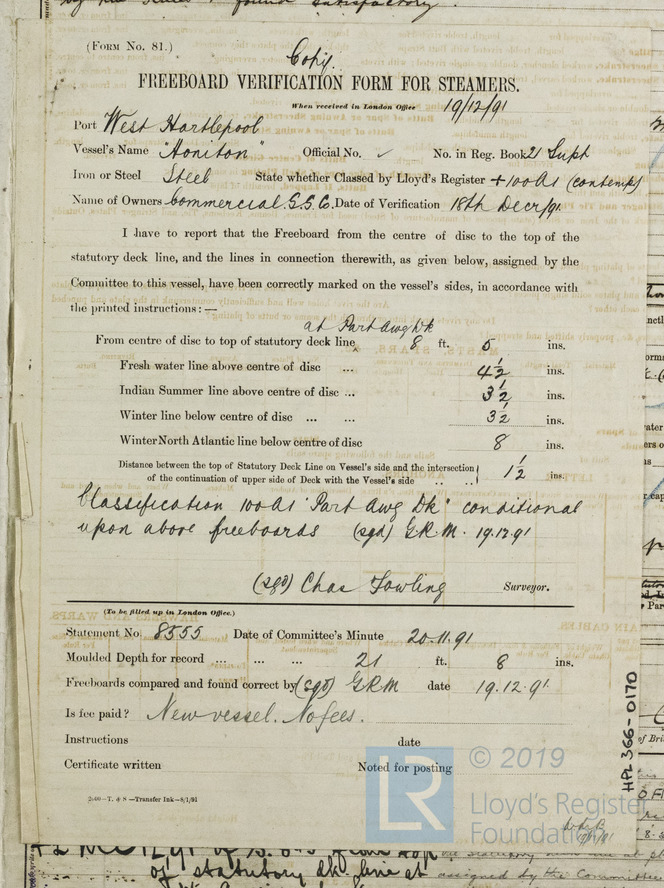 found satisfactory.
(FORM No. 81.)
Copy.
FREEBOARD VERIFICATION FORM FOR STEAMERS.
When received in London Office 19/12/91
Port West Hartlepool
Vessel's Name "Honiton" Official No. ✓ No. in Reg. Book 21 Supt
Iron or Steel Steel State whether Classed by Lloyd's Register +100A1 (contemp)
Name of Owners Commercial S.S.Co. Date of Verification 18th Decr/91
I have to report that the Freeboard from the centre of disc to the top of the
statutory deck line, and the lines in connection therewith, as given below, assigned by the
Committee to this vessel, have been correctly marked on the vessel's sides, in accordance with
the printed instructions:—
at Part Awg Dk
From centre of disc to top of statutory deck line 8 ft. 5 ins.
Fresh water line above centre of disc ... 4½ ins.
Indian Summer line above centre of disc ... 3½ ins.
Winter line below centre of disc ... ... 3½ ins.
Winter North Atlantic line below centre of disc 8 ins.
Distance between the top of Statutory Deck Line on Vessel's side and the intersection
of the continuation of upper side of Deck with the Vessel's side .. .. 1½ ins.
Classification 100A1 "Part Awg Dk" conditional
upon above freeboards (sgd) G.R.M. 19.12.91
(sgd) Chas Fowling Surveyor.
(To be filled up in London Office.)
Statement No. 8555 Date of Committee's Minute 20.11.91
Moulded Depth for record ... ... ... 21 ft. 8 ins.
Freeboards compared and found correct by (sgd) GRM date 19.12.91
Is fee paid? New vessel. No fees.
Instructions date
Certificate written Noted for posting
2,00—T. & S—Transfer Ink—8/1/91
HPL366-0170
LR
© 2019
Lloyd's Register
Foundation
of statutory dk. line at
assigned by the Committee